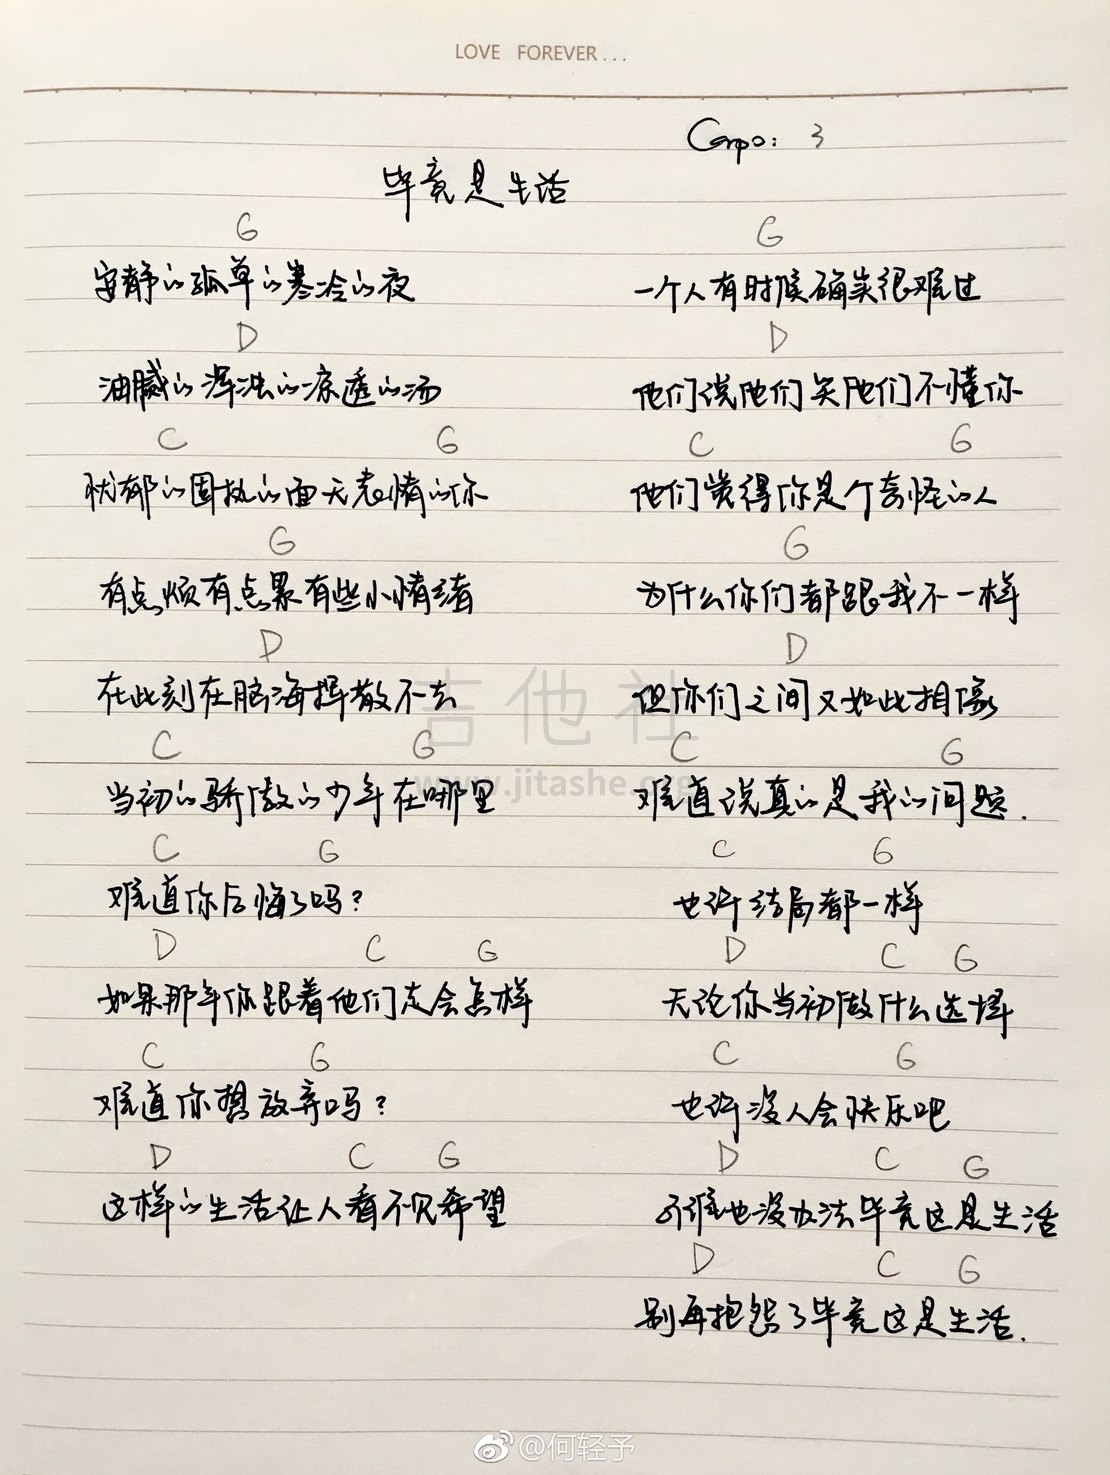 LOVE FOREVER...
Capo: 3
毕竟是生活
G
安静的孤单的寒冷的夜
D
油腻的浑浊的凉透的汤
C G
忧郁的固执的面无表情的你
G
有点烦有点累有些小情绪
D
在此刻在脑海挥散不去
C G
当初的骄傲的少年在哪里
C G
难道你后悔了吗?
D C G
如果那年你跟着他们走会怎样
C G
难道你想放弃吗?
D C G
这样的生活让人看不见希望
G
一个人有时候确实很难过
D
他们说他们笑他们不懂你
C G
他们觉得你是个奇怪的人
G
为什么你们都跟我不一样
D
但你们之间又如此相像
C G
难道说真的是我的问题.
C G
也许结局都一样
D C G
无论你当初做什么选择
C G
也许没人会快乐吧
D C G
谁也没办法毕竟这是生活
D C G
别再抱怨了毕竟这是生活.
吉他社
www.jitashe.org
@何轻予